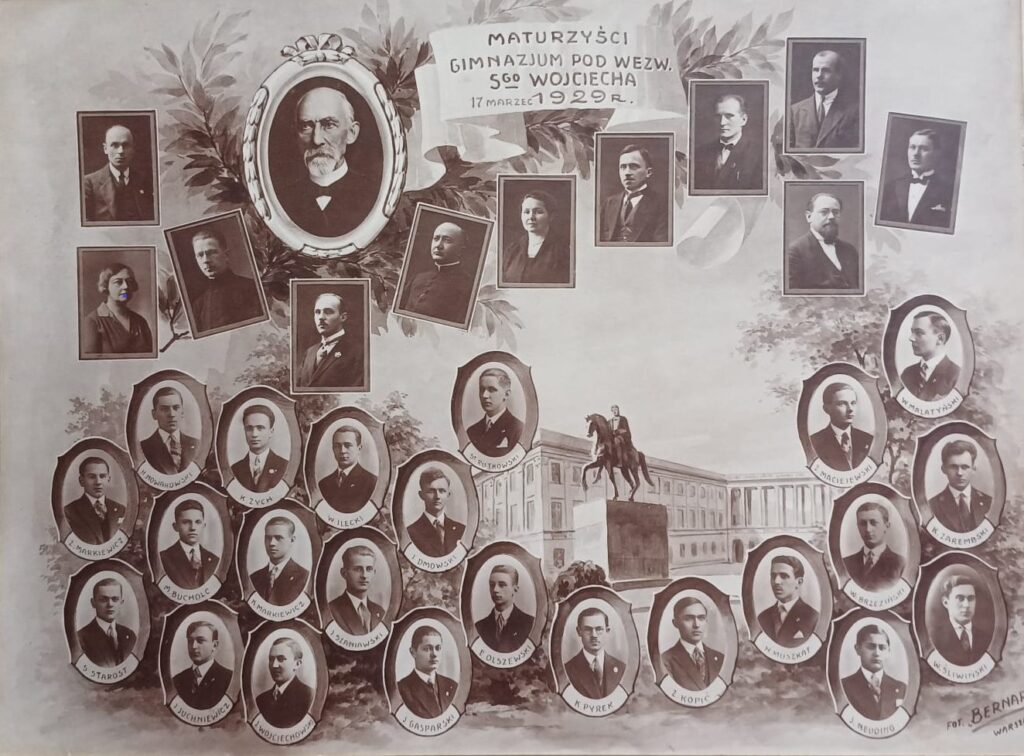 MATURZYŚCI
GIMNAZJUM POD WEZW.
SGO WOJCIECHA
17 MARZEC 1929 R.
W. MALATYŃSKI
M. RUTKOWSKI
J. MACIEJEWSKI
H. NOWAKOWSKI
K. ZYCH
W. ILECKI
Z. MARKIEWICZ
J. DMOWSKI
K. ZAREMBSKI
M. BUCHOLC
K. MARKIEWICZ
J. SZANIAWSKI
W. BRZEZIŃSKI
S. STAROST
E. OLSZEWSKI
H. MUSZKAT
W. ŚLIWIŃSKI
J. JUCHNIEWICZ
J. WOJCIECHOWSKI
J. GASPARSKI
K. PYREK
Z. KOPIĆ
J. NEUDING
FOT. „BERNAR
WARSZ